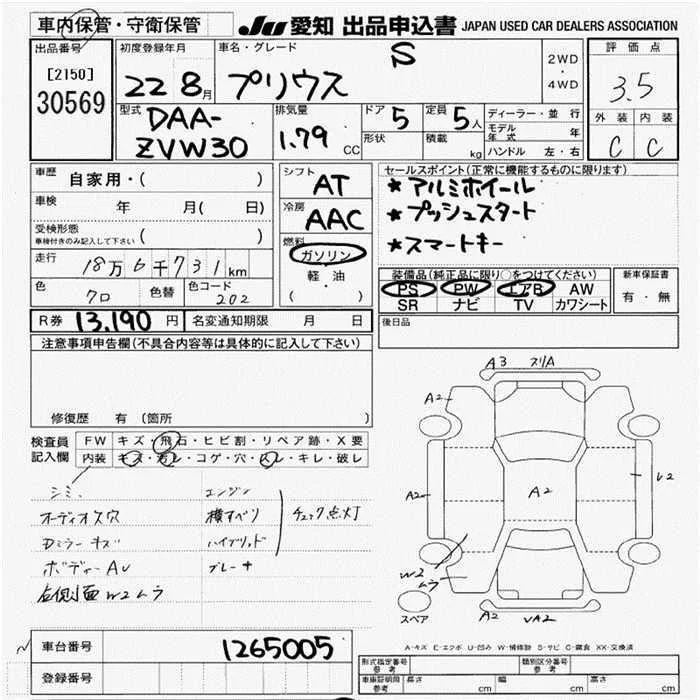 車内保管・守衛保管
JU 愛知 出品申込書 JAPAN USED CAR DEALERS ASSOCIATION
出品番号
[2150]
30569
初度登録年月
22 8月
車名・グレード
プリウス S
2WD
・
4WD
評価点
3.5
外装 内装
C C
型式
DAA-
ZVW30
排気量
1.79 CC
ドア 5
形状
定員 5人
積載 kg
ディーラー・並行
モデル年式 年
ハンドル 左・右
車歴
自家用・( )
車検 年 月( 日)
受検形態
車検付きのみ記入して下さい ( )
走行 18万6千731km
色 クロ 色替 色コード 202
R券 13,190円 名変通知期限 月 日
シフト AT
冷房 AAC
燃料 ガソリン
軽・油
( )
セールスポイント(正常に機能するものに限ります)
★アルミホイール
★プッシュスタート
★スマートキー
装備品(純正品に限り○をつけてください)
PS PW エアB AW
SR ナビ TV カワシート
新車保証書
有・無
後日品
注意事項申告欄(不具合内容等は具体的に記入して下さい)
修復歴 有(箇所
検査員記入欄
FW キズ・飛石・ヒビ割・リペア跡・X要
内装 キズ・汚レ・コゲ・穴・スレ・キレ・破レ
シミ、
オーディオ欠穴
Dミラー キズ
ボディー AU
左側面W2ムラ
エンジン
横すべり
ハイブリッド
ブレーキ
チェック点灯
A3 スリA
A2
A2
A2
U2
W2
ムラ
A2
UA2
スペア
A-キズ E-エクボ U-凹み W-補修跡 S-サビ C-腐食 XX-交換済
車台番号 1265005
登録番号
形式指定番号
参考
類別区分番号
参考
車庫証明用
参考
長さ cm 幅 cm 高さ cm